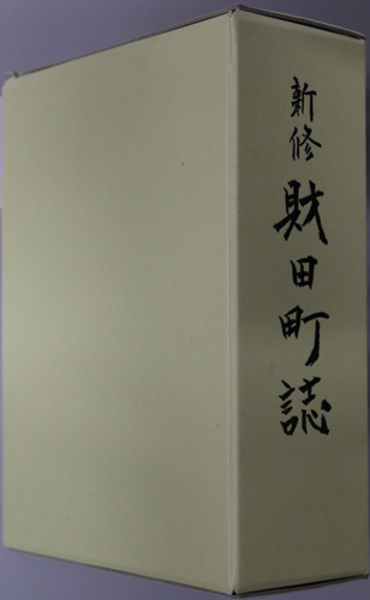 新修 財田町誌